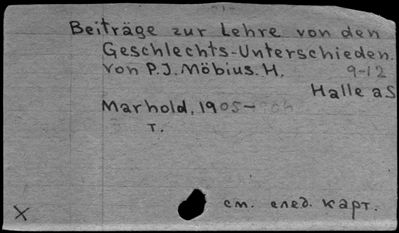 Beiträge zur Lehre von den
Geschlechts-Unterschieden.
von P.J. Möbius. H. 9-12
Halle aS
Marhold, 1905-
т.
см. след. карт.
X